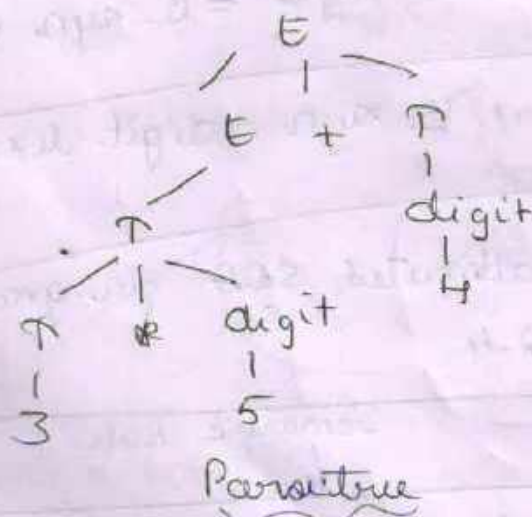 E
E + T
T digit
4
T * digit
3 5
Parsetree